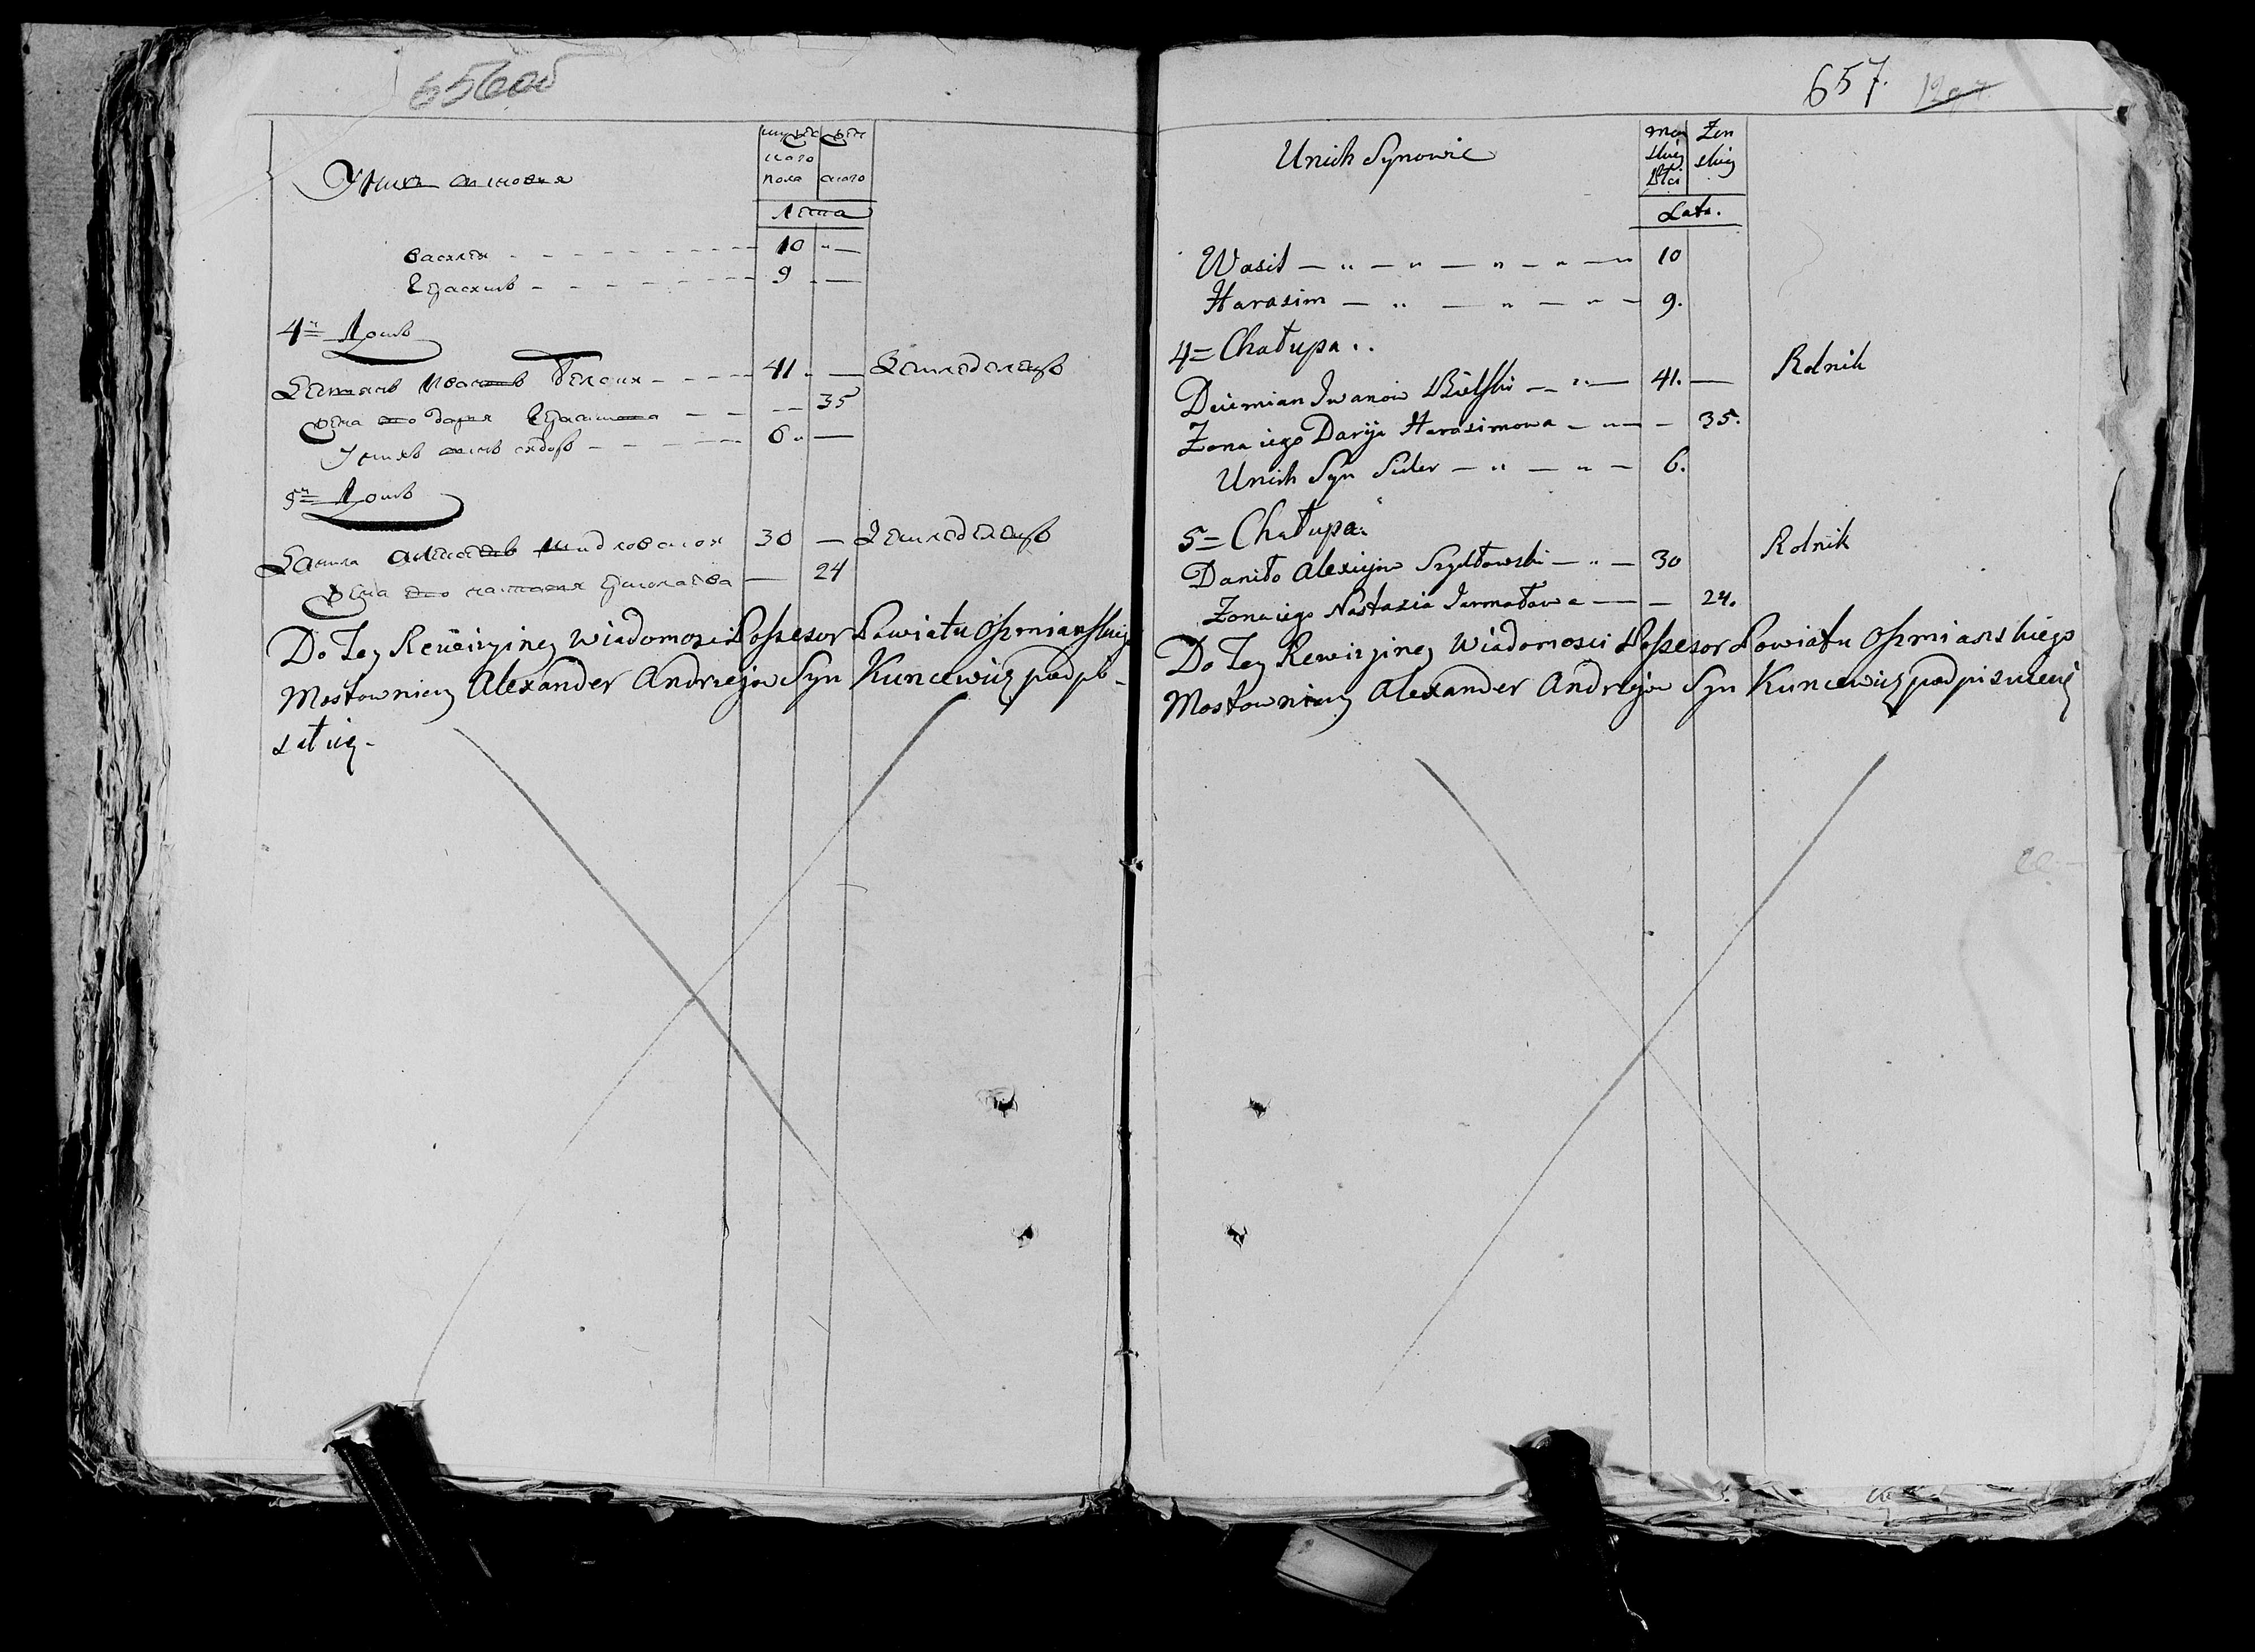 656об
У них сыновья
мужес женс
кого
пола ского
Лета
василей 10
Герасимъ 9
4й Домъ
Демянъ Ивановъ Белский 41 Земледелецъ
Жена его дарья Герасимова 35
У нихъ сынъ сидоръ 6
5й Домъ
Данила Алексеевъ Шидловский 30 Земледелецъ
Жена его настасия 24
Do Tey Rewizyiney Wiadomosci Possesor Powiatu Oszmianskiego
Mostowniczy Alexander Andrzejow Syn Kuncewicz podpi-
sał się.
657.
Unich Synowie
męs Żen
skiey skiey
płci
Lata.
Wasil 10
Harasim 9.
4 = Chałupa
Dziemian Iwanow Bielski 41. Rolnik
Zona iego Darija Harasimowa 35.
Unich Syn Sider 6.
5 = Chałupa
Daniło Alexiejow Szydłowski 30 Rolnik
Zona iego Nastazia Jarmołowa 24.
Do Tey Rewizyiney Wiadomosci Possesor Powiatu Oszmianskiego
Mostowniczy Alexander Andrzejow Syn Kuncewicz podpisuie się